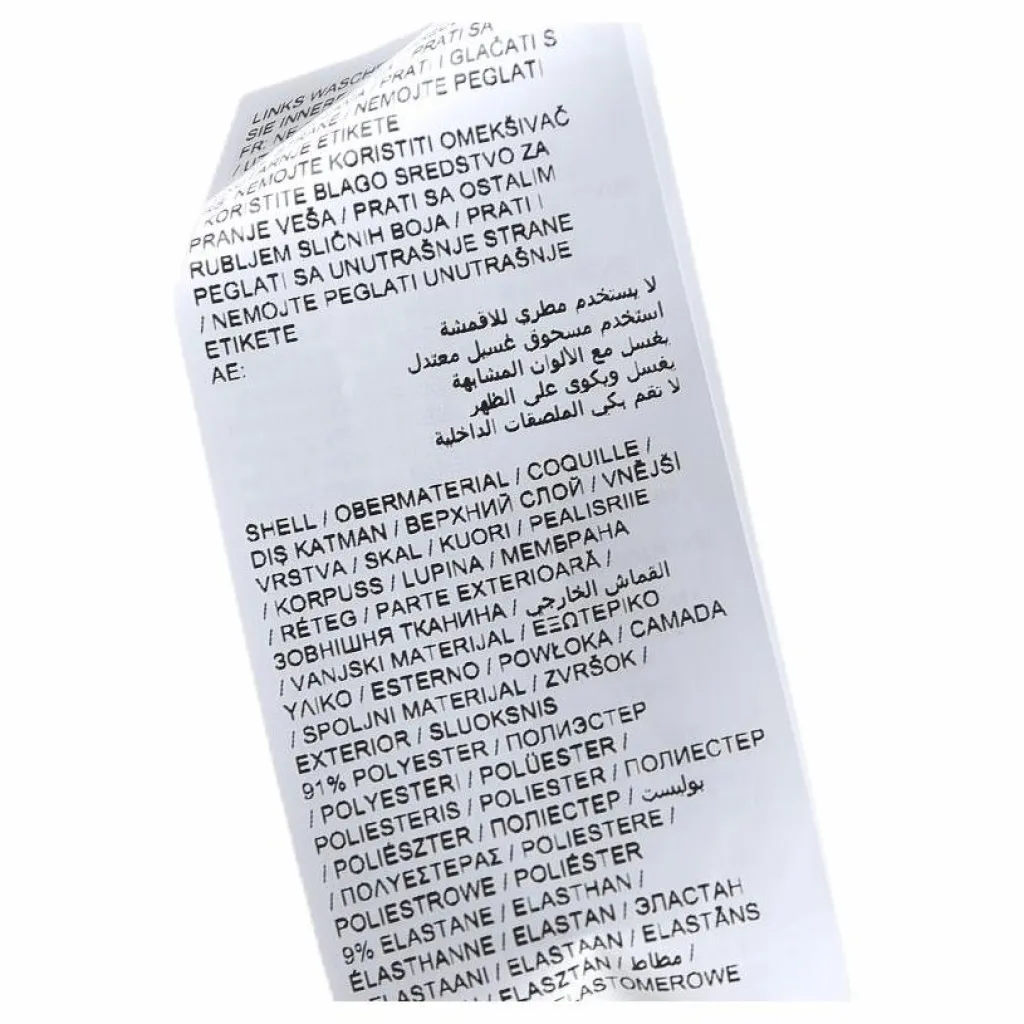 PRATI SA
LINKS WASCHEN PRATI I GLAČATI S
SIE INNERE / NEMOJTE PEGLATI
FR:
ETIKETE
NEMOJTE KORISTITI OMEKŠIVAČ
KORISTITE BLAGO SREDSTVO ZA
PRANJE VEŠA / PRATI SA OSTALIM
RUBLJEM SLIČNIH BOJA / PRATI I
PEGLATI SA UNUTRAŠNJE STRANE
/ NEMOJTE PEGLATI UNUTRAŠNJE
ETIKETE
AE:
لا يستخدم مطري للاقمشة
استخدم مسحوق غسيل معتدل
يغسل مع الألوان المشابهة
يغسل ويكوى على الظهر
لا تقم بكي الملصقات الداخلية
SHELL / OBERMATERIAL / COQUILLE /
DIŞ KATMAN / ВЕРХНИЙ СЛОЙ / VNĚJŠÍ
VRSTVA / SKAL / KUORI / PEALISRIIE
/ KORPUSS / LUPINA / МЕМБРАНА
/ RÉTEG / PARTE EXTERIOARĂ /
ЗОВНІШНЯ ТКАНИНА / القماش الخارجي
/ VANJSKI MATERIJAL / ΕΞΩΤΕΡΙΚΟ
ΥΛΙΚΟ / ESTERNO / POWŁOKA / CAMADA
/ SPOLJNI MATERIJAL / ZVRŠOK /
EXTERIOR / SLUOKSNIS
91% POLYESTER / ПОЛИЭСТЕР
/ POLYESTERI / POLÜESTER /
POLIESTERIS / POLIESTER / ПОЛИЕСТЕР
/ POLIÉSZTER / ПОЛІЕСТЕР / بوليستر
/ ΠΟΛΥΕΣΤΕΡΑΣ / POLIESTERE /
POLIESTROWE / POLIÉSTER
9% ELASTANE / ELASTHAN /
ÉLASTHANNE / ELASTAN / ЭЛАСТАН
ELASTAANI / ELASTAAN / ELASTĀNS
ELASZTÁN / مطاط /
ELASTOMEROWE